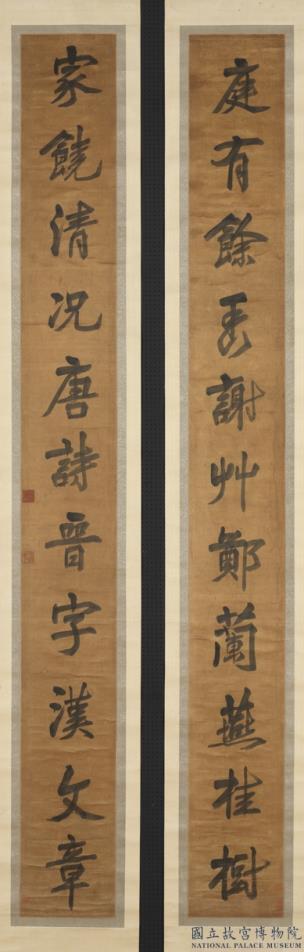 庭有餘香謝艸鄭蘭燕桂樹
家饒清况唐詩晋字漢文章
國立故宮博物院
NATIONAL PALACE MUSEUM